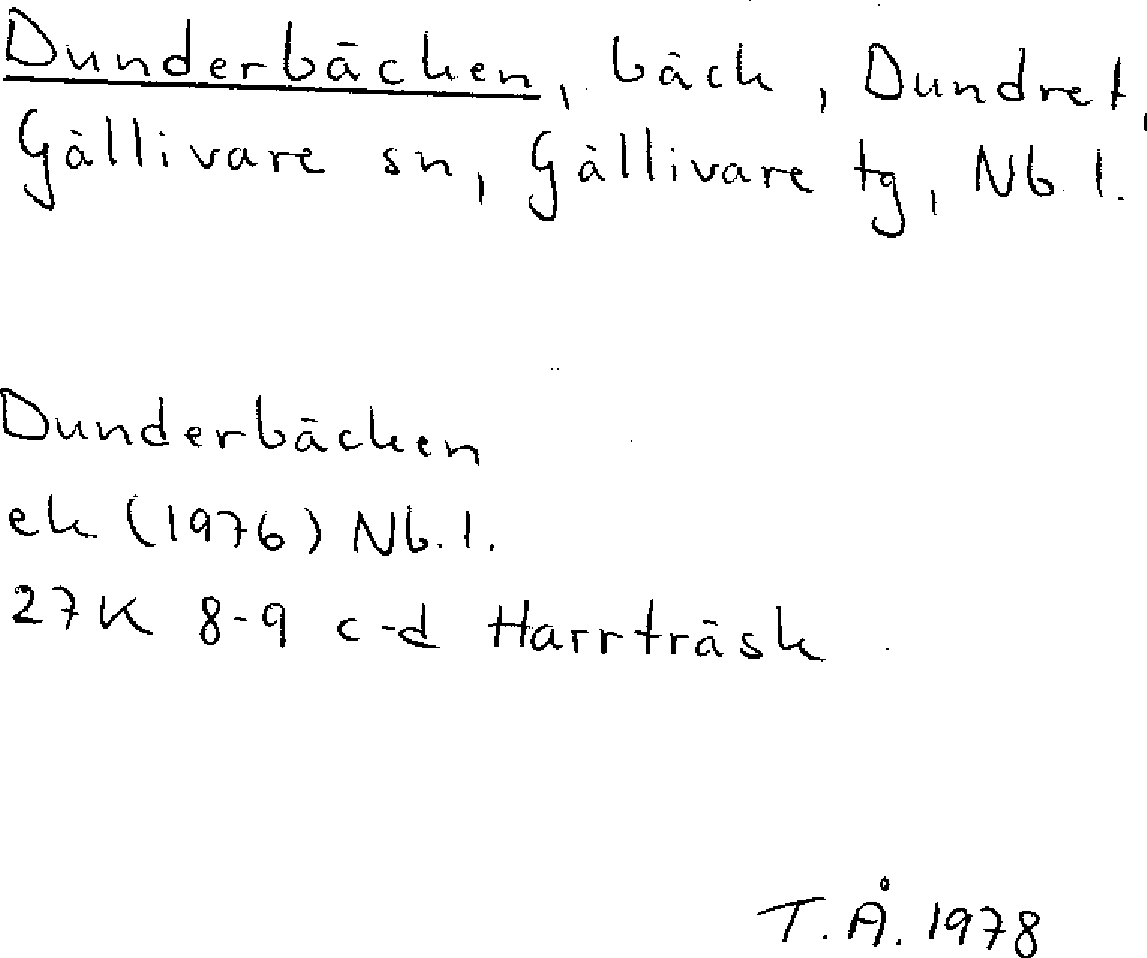 Dunderbäcken, bäck, Dundret,
Gällivare sn, Gällivare tg, Nb l.
Dunderbäcken
ek (1976) Nb. l.
27K 8-9 c-d Harrträsk
T. Å. 1978